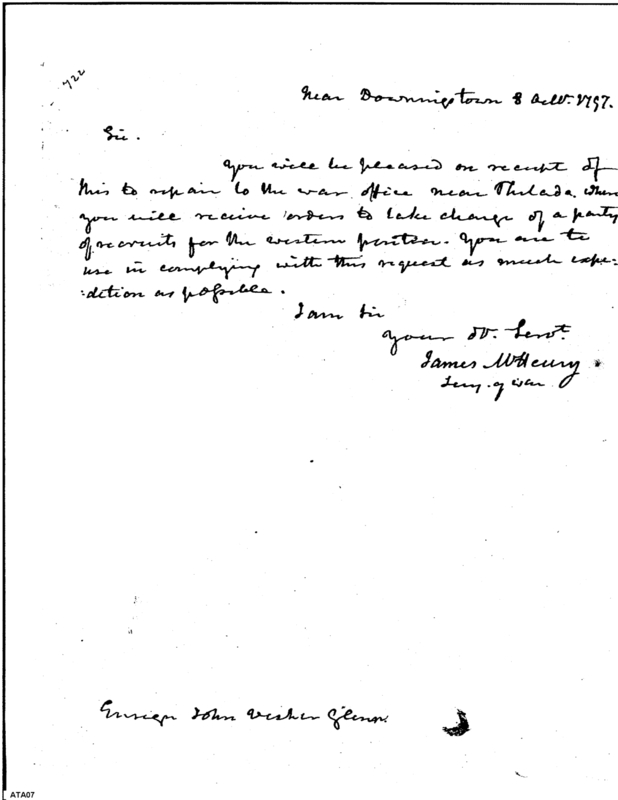 722
Near Downingstown 8 Octbr. 1797.
Sir.
You will be pleased on receipt of
this to repair to the war office near Philada. where
you will receive orders to take charge of a party
of recruits for the western frontier. You are to
use in complying with this request as much expe-
:dition as possible.
I am Sir
your ob. Servt.
James McHenry
Secy. of war
Ensign John Visher Glenn
ATA07